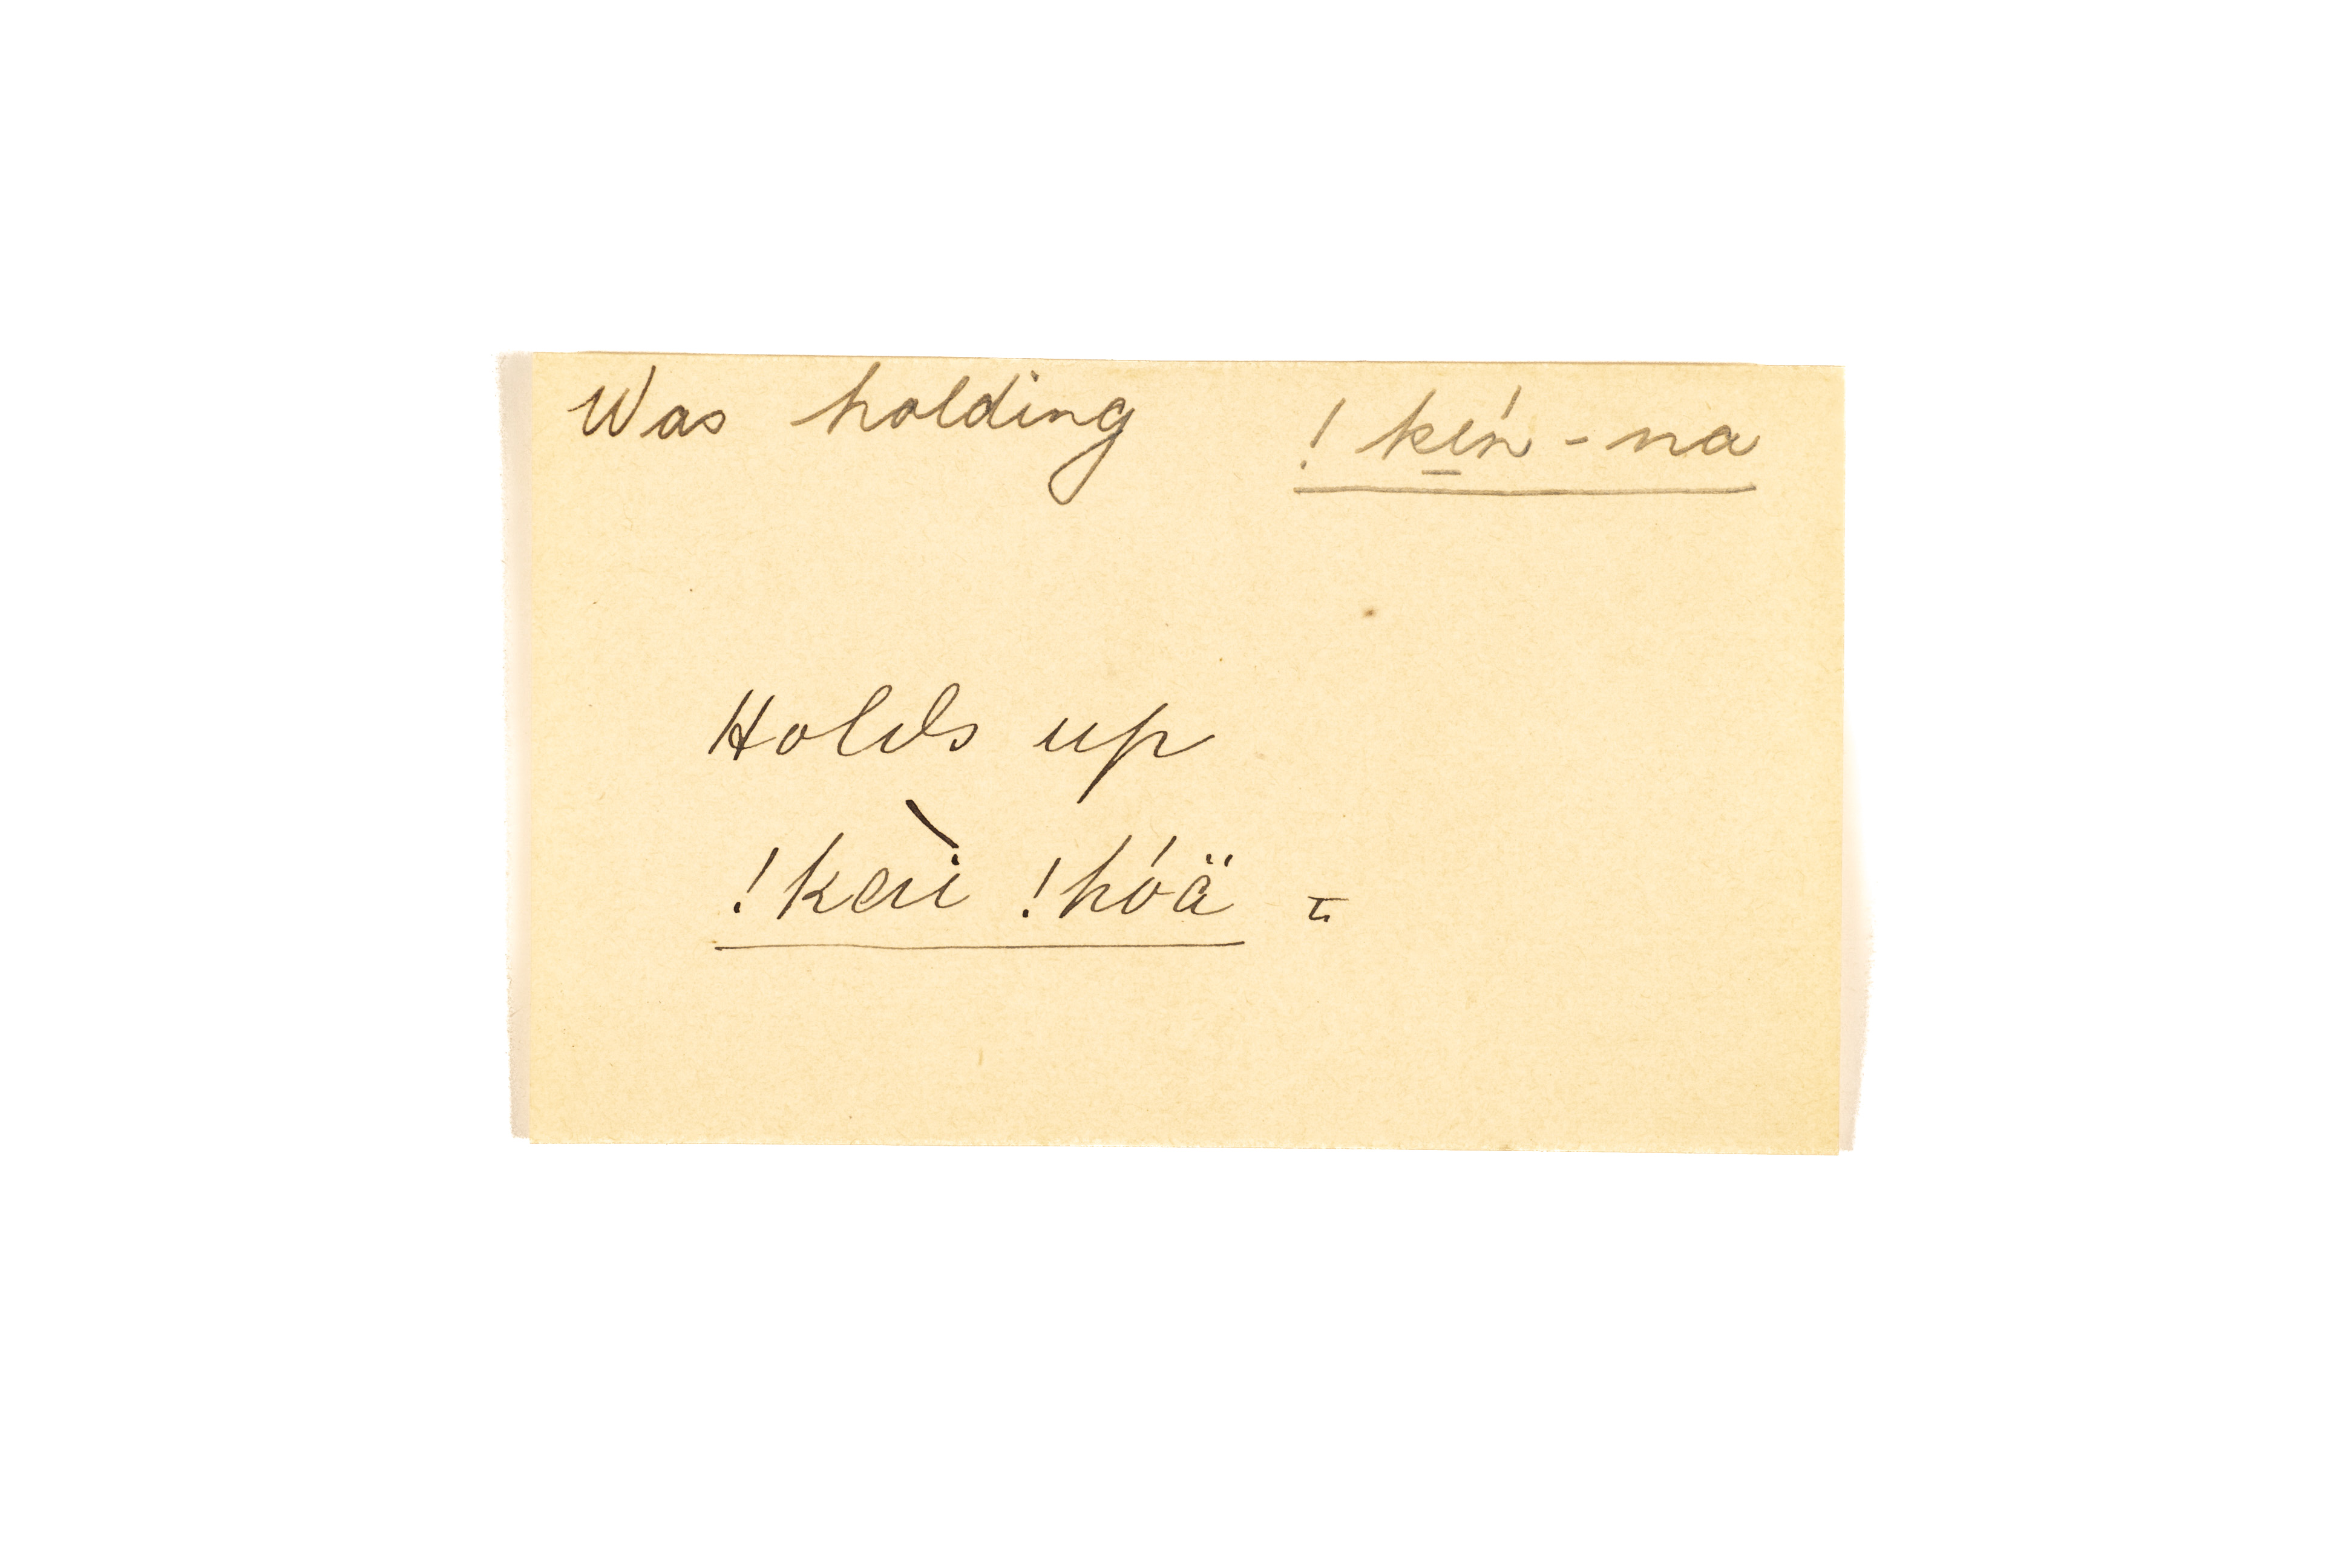 Was holding !ke̱ń-na
Holds up
!kàĭ !hóä =